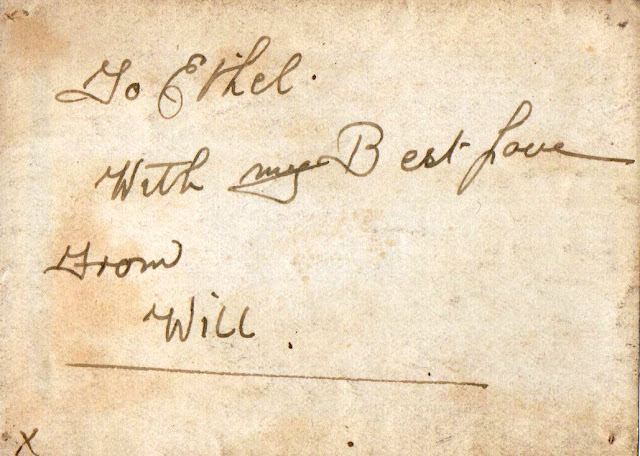 To Ethel.
With my Best Love
From
Will.
X